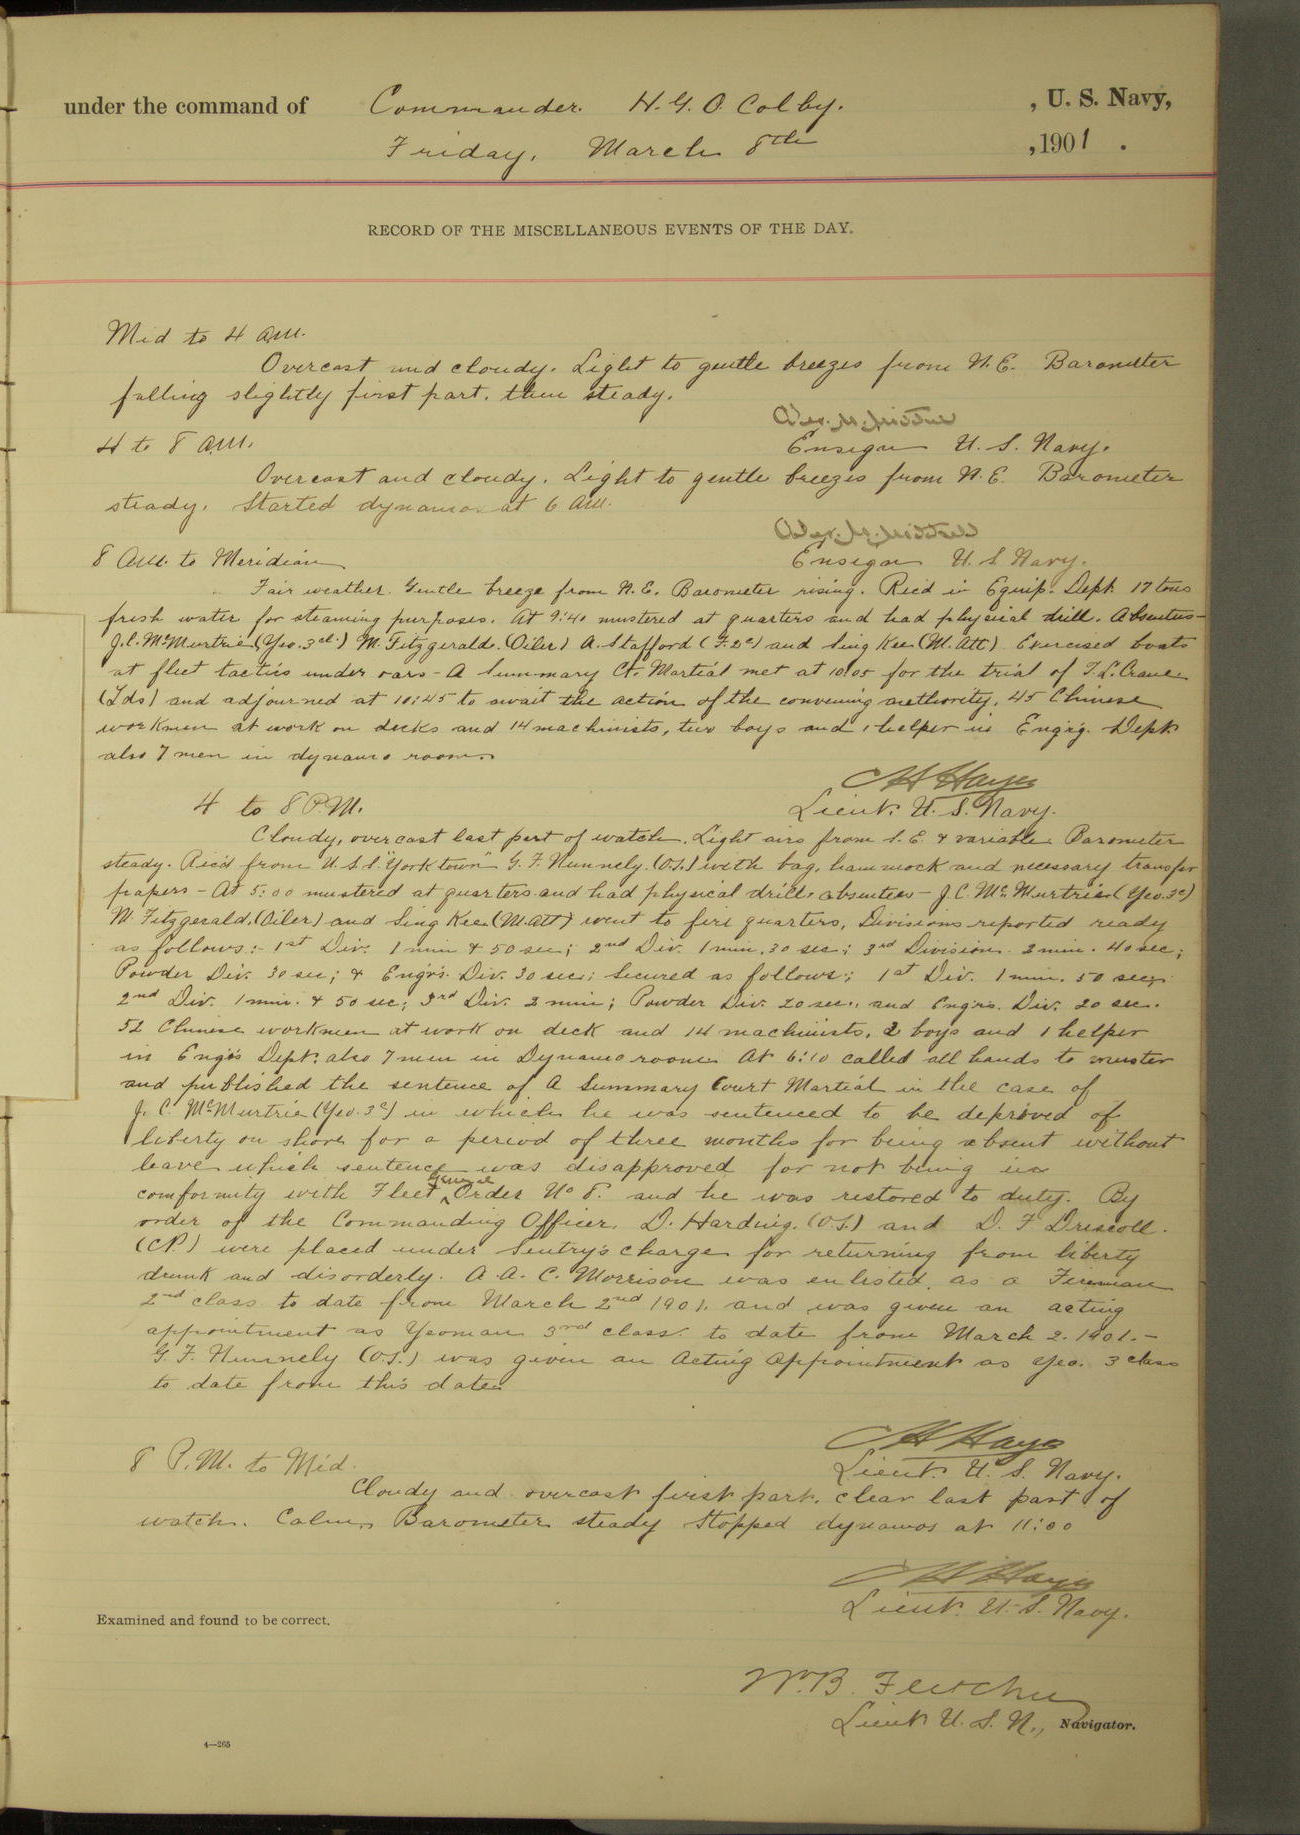 under the command of Commander. H. G. O. Colby. , U. S. Navy,
Friday, March 8th ,1901 .
RECORD OF THE MISCELLANEOUS EVENTS OF THE DAY.
Mid to 4 a.m.
Overcast and cloudy. Light to gentle breezes from N.E. Barometer
falling slightly first part, then steady.
4 to 8 a.m.
Ensign U. S. Navy.
Overcast and cloudy. Light to gentle breezes from N.E. Barometer
steady. Started dynamo at 6 a.m.
8 a.m. to Meridian
Ensign U. S. Navy.
Fair weather. Gentle breeze from N.E. Barometer rising. Rec'd in Equip. Dept. 17 tons
fresh water for steaming purposes. At 9:40 mustered at quarters and had physical drill. Absentees-
J.C. McMurtrie (Yeo. 3cl.) M. Fitzgerald. (Oiler) A. Stafford (F.2c) and Sing Kee (M. Att). Exercised boats
at fleet tactics under oars - A Summary Ct. Martial met at 10:05 for the trial of T. L. Crane
(Lds) and adjourned at 10:45 to await the action of the convening authority. 45 Chinese
workmen at work on decks and 14 machinists, two boys and 1 helper in Eng'g. Dept.
also 7 men in dynamo room.
C H Hayes
4 to 8 P.M.
Lieut. U. S. Navy.
Cloudy, overcast last part of watch. Light airs from S.E. & variable. Barometer
steady. Rec'd from U.S.S. "Yorktown" G. F. Nunnely. (O.S.) with bag, hammock and necessary transfer
papers - At 5:00 mustered at quarters and had physical drill, absentees - J. C. McMurtrie (Yeo. 3c)
M. Fitzgerald. (Oiler) and Sing Kee (M. Att) went to fire quarters, Divisions reported ready
as follows:- 1st Div. 1 min & 50 sec; 2nd Div. 1 min. 30 sec; 3rd Division 2 min. 40 sec;
Powder Div. 30 sec; & Engr's. Div. 30 sec; Secured as follows; 1st Div. 1 min. 50 sec;
2nd Div. 1 min. & 50 sec; 3rd Div. 2 min; Powder Div. 20 sec., and Engrs. Div. 20 sec.
52 Chinese workmen at work on deck and 14 machinists, 2 boys and 1 helper
in Eng's Dept. also 7 men in Dynamo room. At 6:10 called all hands to muster
and published the sentence of A Summary Court Martial in the case of
J. C. McMurtrie (Yeo. 3c) in which he was sentenced to be deprived of
liberty on shore for a period of three months for being absent without
leave which sentence was disapproved for not being in
comformity with Fleet General Order No 8. and he was restored to duty. By
order of the Commanding Officer. D. Harding. (O.S.) and D. F Driscoll.
(CP.) were placed under Sentry's charge for returning from liberty
drunk and disorderly. A. A. C. Morrison was enlisted as a Fireman
2nd class to date from March 2nd 1901. and was given an acting
appointment as Yeoman 3rd class to date from March 2. 1901. -
G. F. Nunnely (O.S.) was given an Acting Appointment as Yeo. 3 class
to date from this date.
C H Hayes
8 P.M. to Mid.
Lieut. U. S. Navy.
Cloudy and overcast first part, clear last part of
watch. Calm. Barometer steady Stopped dynamos at 11:00
C H Hayes
Lieut. U. S. Navy.
Examined and found to be correct.
Wm. B. Fletcher
Lieut U. S. N., Navigator.
4—265